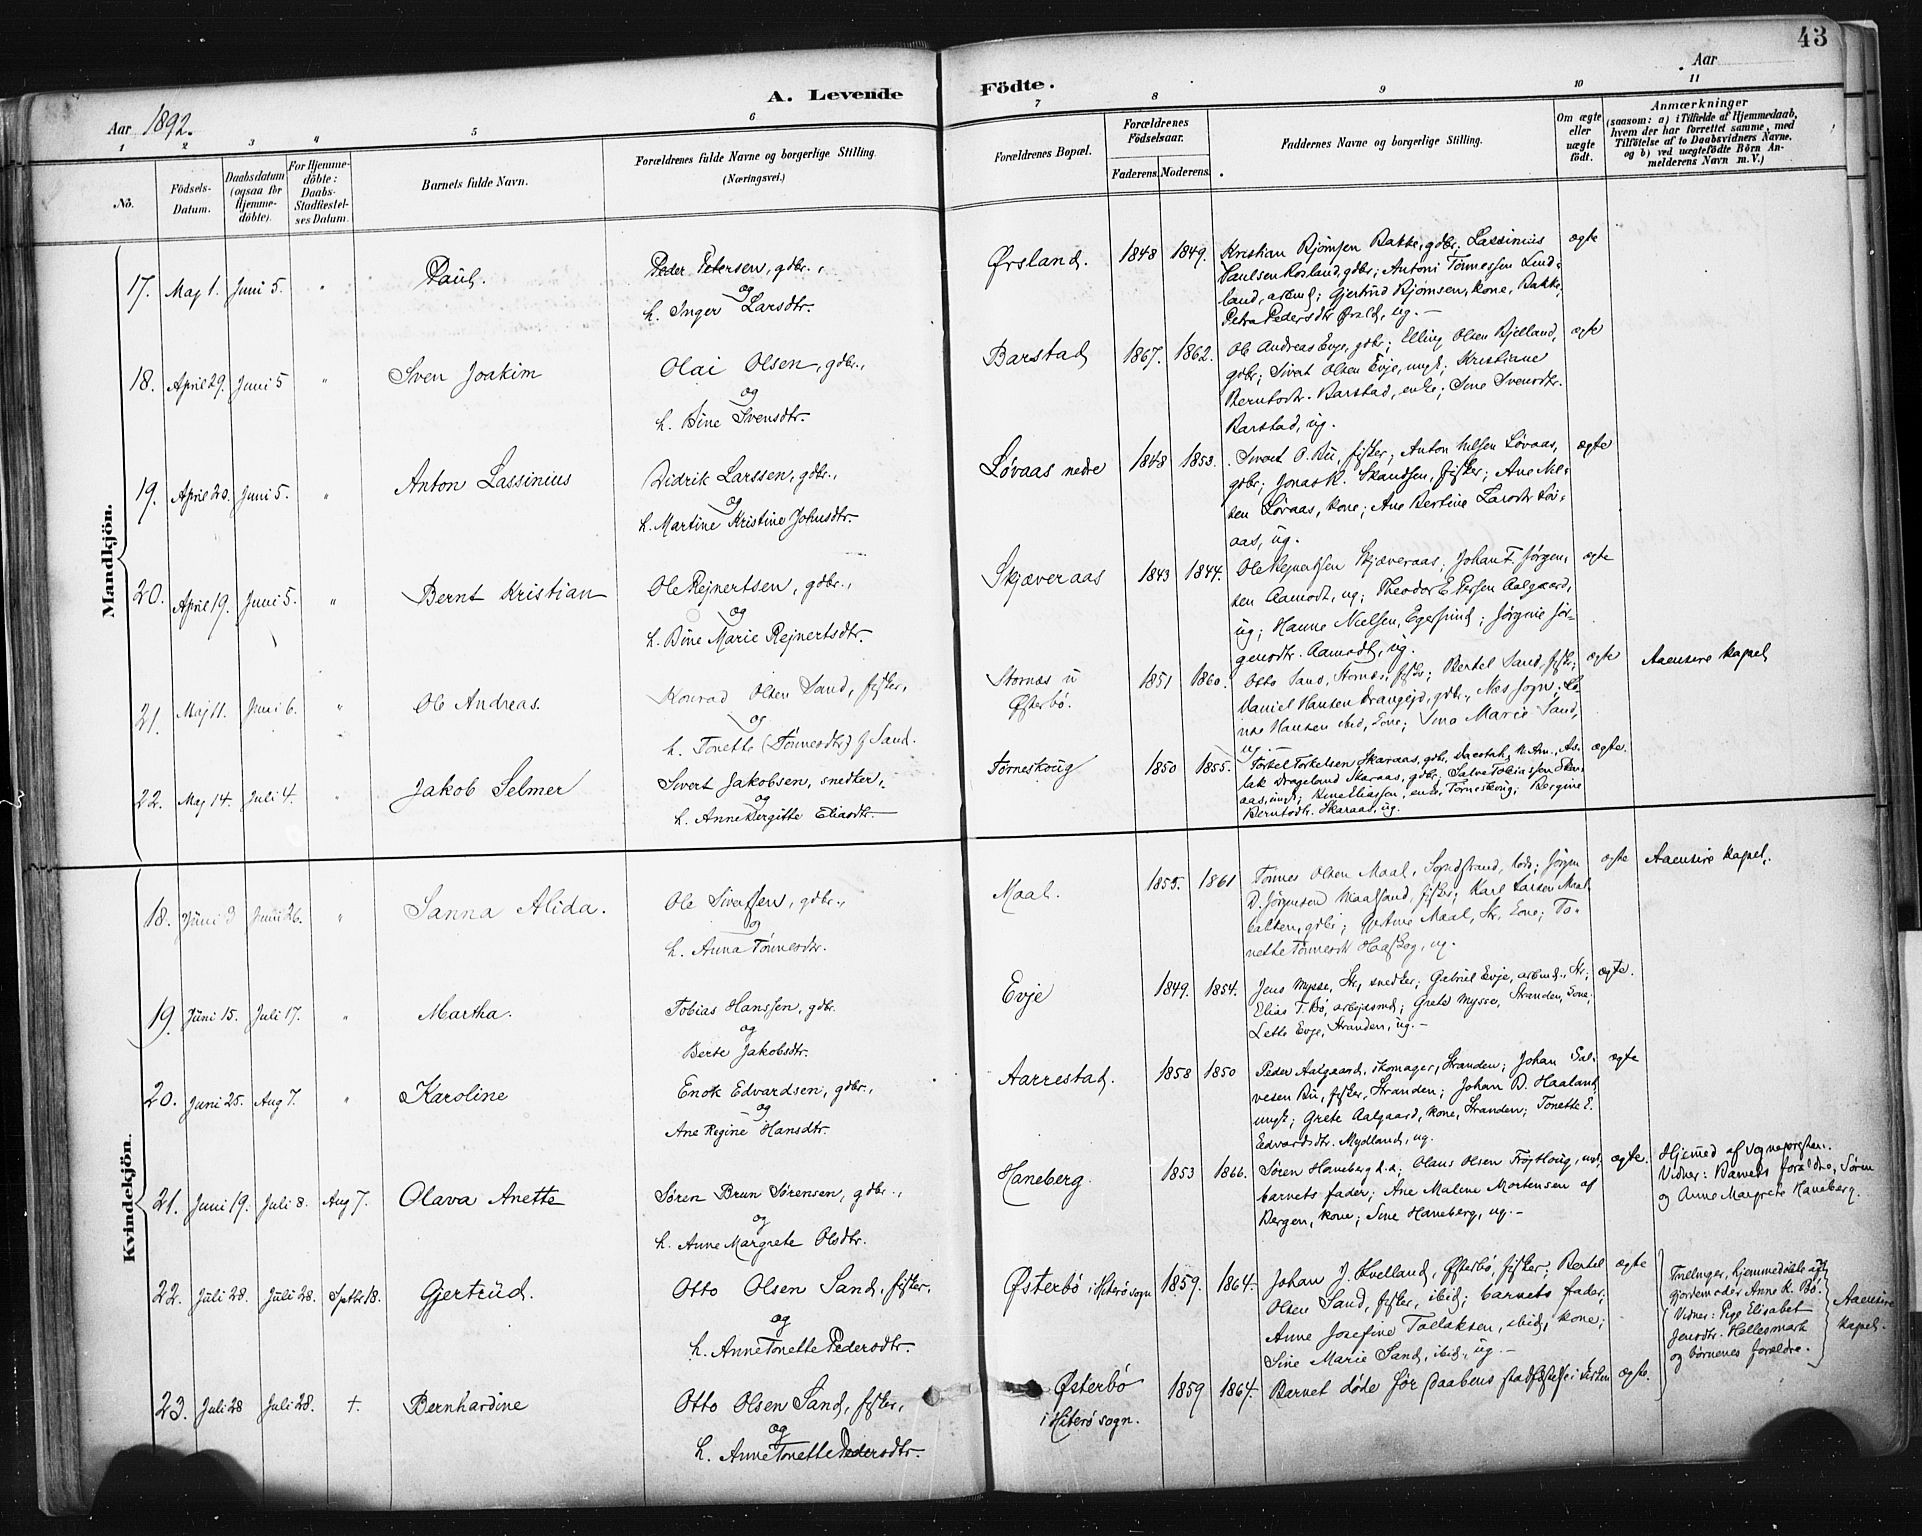 43
Aar 1892.
A. Levende Födte.
Aar
1 2 3 " 5 6 7 8 9 10 11
Nö.
Födsels-Datum.
Daabsdatum (ogsaa for Hjemme-döbte).
For Hjemme-döbte: Daabs-Stadfæstel-ses Datum.
Barnets fulde Navn.
Forældrenes fulde Navne og borgerlige Stilling.
(Næringsvei.)
Forældrenes Bopæl.
Forældrenes Födselsaar.
Faderens. Moderens.
Faddernes Navne og borgerlige Stilling.
Om ægte eller uægte födt.
Anmærkninger
(saasom: a) i Tilfælde af Hjemmedaab,
hvem der har forrettet samme, med
Tilföielse af to Daabsvidners Navne.
og b) ved uægtefödte Börn An-
melderens Navn m. V.)
Mandkjön.
17. Maj 1. Juni 5. " Paul. Peder Petersen, gdbr.,
og
h. Inger Larsdtr.
Ørsland. 1848 1849.
Kristian Bjørnsen Bakke, gdbr; Lassinius
Paulsen Rosland, gdbr; Antoni Tønnessen Lind-
land, arbmd; Gjertrud Bjørnsen, kone, Bakke,
Petra Pedersdtr , ug. —
ægte
18. April 29. Juni 5 " Sven Joakim Olai Olsen, gdbr.,
og
h. Bine Svensdtr.
Barstad 1867. 1862.
Ole Andreas Evje, gdbr; Elling Olsen Bjelland,
gdbr; Sivert Olsen Evje, ungk; Kristiane
Berntsdtr. Barstad, enke; Sine Svensdtr.
Barstad, ug.
ægte
19. April 20. Juni 5. " Anton Lassinius Didrik Larssen, gdbr.,
og
h. Martine Kristine Johnsdtr.
Løvaas nedre 1848 1853.
Sivert O. Bu, fisker; Anton Nilsen Løvaas,
gdbr; Jonas K. Skandsen, fisker; Ane Nil-
sen Løvaas, kone; Ane Bertine Larsdtr Løv-
aas, ug.
ægte
20. April 19. Juni 5. " Bernt Kristian Ole Rejnertsen, gdbr.,
og
h. Bine Marie Rejnertsdtr.
Skjæveraas 1843 1844.
Ole Rejnertsen Skjæveraas; Johan F. Jørgen-
sen Aamodt, ug; Theodor Petersen Aalgaard,
ug; Hanne Nielsen, Egersund; Jørgine Jør-
gensdtr. Aamodt, ug.
ægte
21. Maj 11. Juni 6. " Ole Andreas. Konrad Olsen Sand, fisker,
og
h. Tonette (Tønnesdtr) f Sand.
Stornæs u
Østerbö.
1851 1860.
Otto Sand, Stornæs, fisker; Bertel Sand, fisker;
Daniel Hansen Drangejd, gdbr, Næs sogn;
Hansen ibid, kone; Sina Marie Sand,
ug. —
ægte
Aaensire kapel
22. Maj 14. Juli 4. " Jakob Selmer Sivert Jakobsen, snedker,
og
h. Anne Bergitte Eliasdtr.
Torneskoug 1850 1855.
Torkel Torkelsen Skaraas, gdbr, As-
lak Drageland Skaraas, gdbr; Salve Tobiassen Skar-
aas, ungk; Eliassen, enke, Torneskoug; Bergine
Berntsdtr. Skaraas, ug.
ægte.
Kvindekjön.
18. Juni 3 Juni 26. " Sanna Alida. Ole Sivertsen, gdbr.,
og
h. Anna Tønnesdtr.
Maal. 1855. 1861
Tønnes Olsen Maal, Sogndstrand, lods; Jørgen
D. Jørgensen Maalsand, fisker; Karl Larsen Maal
, gdbr; Maal, Str, kone; To-
nette Tønnesdtr , ug.
ægte
Aaensire kapel.
19. Juni 15. Juli 17. " Martha. Tobias Hanssen, gdbr.
og
Berte Jakobsdtr.
Evje 1849. 1854.
Jens Mysse, Str, snedker; Gabriel Evje, arbmd., Str;
Elias T. Bø, arbejdsmd; Grete Mysse, Stranden, kone,
Lette Evje, Stranden, ug. —
ægte.
20. Juni 25. Aug 7. " Karoline Enok Edvardsen, gdbr.,
og
Ane Regine Hansdtr.
Aarrestad. 1858 1850
Peder Aalgaard, skomager, Stranden; Johan Sal-
vesen Bu, fisker, Stranden; Johan D. Haaland,
ungk; Grete Aalgaard, kone, Stranden; Tonette E.
Edvardsdtr. Mydland, ug.
ægte
21. Juni 19. Juli 8. Aug 7. Olava Anette Søren Brun Sørensen, gdbr.,
og
h. Anne Margrete Olsdtr.
Haneberg. 1853 1866.
Søren Haneberg d.æ; Olaus Olsen , ungk;
barnets fader; Ane Malene Mortensen af
Bergen, kone; Sine Haneberg, ug. —
ægte.
Hjemmed af sognepresten.
Vidner: Barnets forældre, Søren
og Anne Margrete Haneberg.
22. Juli 28. Juli 28. Septbr 18. Gjertrud. Otto Olsen Sand, fisker,
og
h. Anne Tonette Pedersdtr.
Østerbö i Hiterø sogn 1859. 1864.
Johan J. Kvelland, Østerbö, fisker; Bertel
Olsen Sand, fisker, ibid; barnets fader,
Anne Josefine Tollaksen, ibid, kone;
Sine Marie Sand, ibid., ug. —
ægte
Tvillinger, hjemmedöbte af
gjordemoder Anne K. Bø.
Vidner: Pige Elisabet
Jensdtr. Hellesmark
og börnenes forældre.
Aaensire
kapel.
23. Juli 28 Juli 28. +. Bernhardine Otto Olsen Sand, fisker,
og
h. Anne Tonette Pedersdtr.
Østerbö
i Hiterø sogn.
1859 1864.
Barnet døde før daabens stadfæstelse i kirken
ægte.